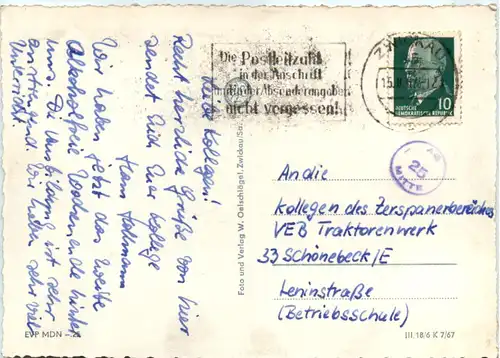 Liebe Kollegen!
Recht herzliche Grüße von hier
sendet Euch Euer Kollege
Hans
Wir haben jetzt das zweite
Alkoholfreie Wochenende hinter
uns. Die Ausbildung ist sehr
anstrengend. Wir haben sehr viel
Unterricht.
Foto und Verlag W. Oetschlägel, Zwickau/Sa.
Die Postleitzahl
in der Anschrift
und in der Absenderangabe
nicht vergessen!
ZWICKAU
10
DEUTSCHE
DEMOKRATISCHE REPUBLIK
25
MATTE
An die
Kollegen des Zerspanerbereiches
VEB Traktorenwerk
33 Schönebeck/E
Leninstraße
(Betriebsschule)
EVP MDN
III.18/6 K 7/67